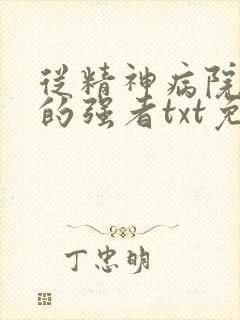 從精神病院
的强者txt免
丁忠明